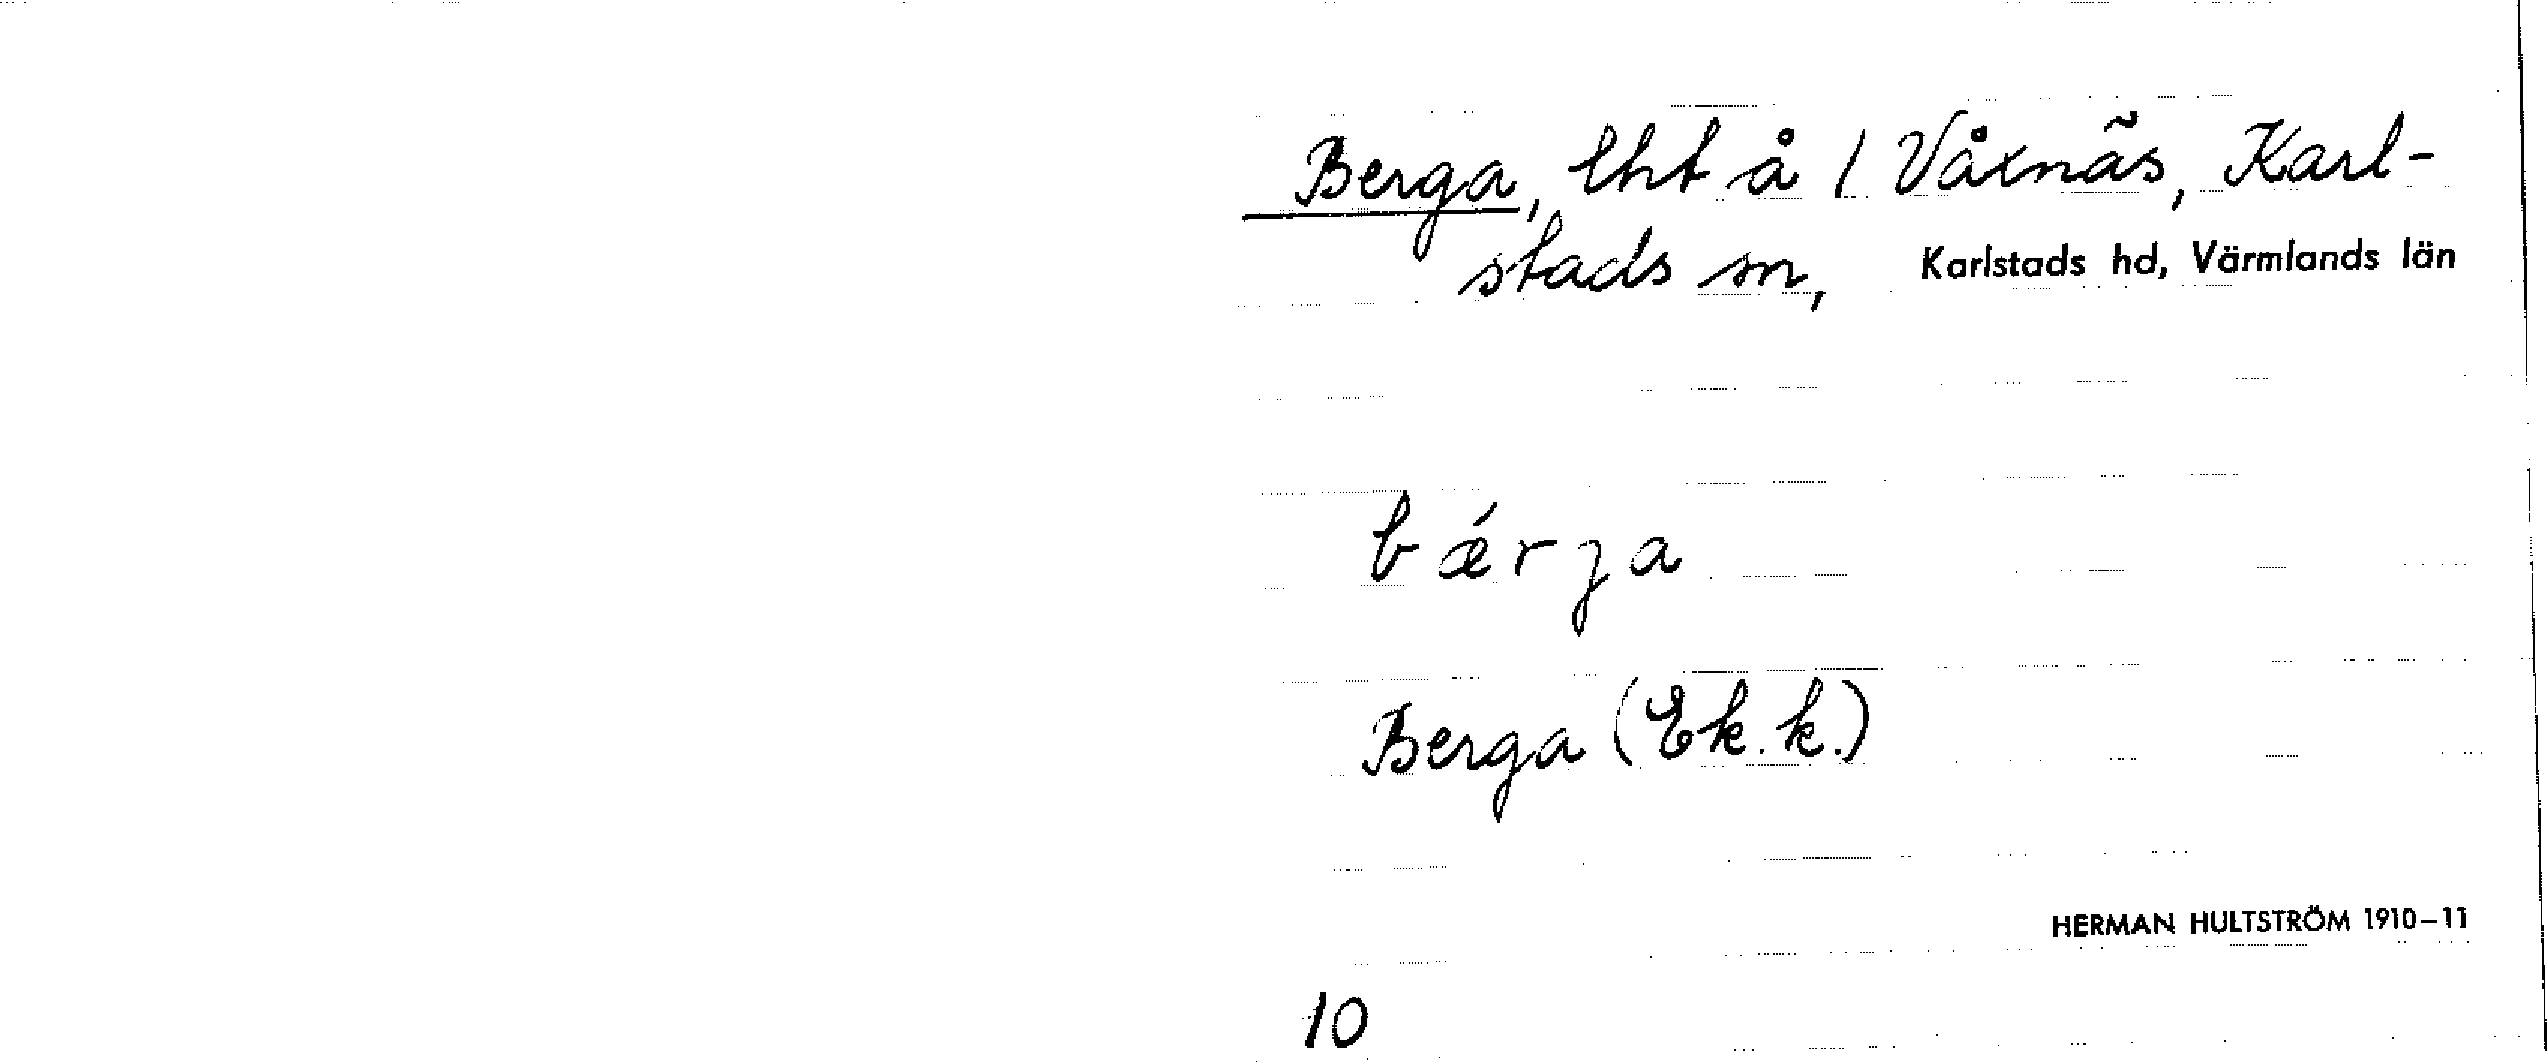 Berga, lht å 1 Våxnäs, Karl-
stads sn, Karlstads hd, Värmlands län
bǽrja
Berga (Ek. k.)
HERMAN HULTSTRÖM 1910–11
10